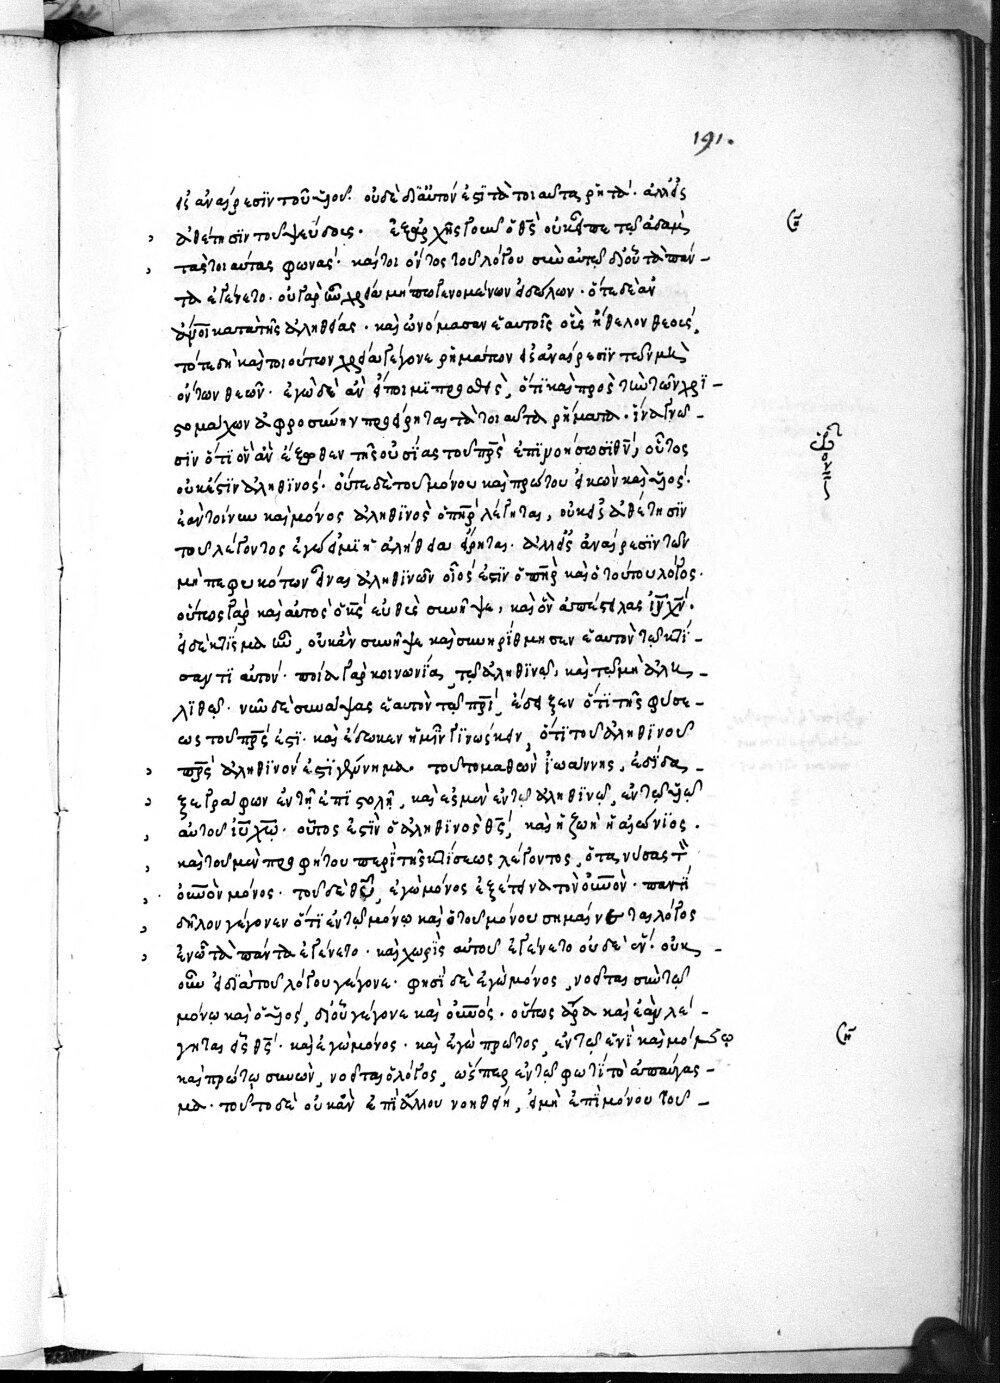 191.
εἰς ἀναίρεσιν τοῦ υἱοῦ. οὐδὲ δι' αὐτόν ἐστι τὰ τοιαῦτα ῥητά. ἀλλ' εἰς
ἀθέτησιν τοῦ ψεύδους. ἐξ ἀρχῆς γοῦν ὁ θς̅ οὐκ εἶπε τῷ ἀδὰμ
τὰς τοιαύτας φωνάς. καίτοι ὄντος τοῦ λόγου σὺν αὐτῷ δι' οὗ τὰ πάν –
τα ἐγένετο. οὐ γὰρ ἦν χρεία μήπω γενομένων εἰδώλων. ὅτε δὲ ἄν
ἄνο̅ι κατὰ τῆς ἀληθείας. καὶ ὠνόμασαν ἑαυτοῖς οὓς ἤθελον θεούς,
τότε δὴ καὶ τοιούτων χρεία γέγονε ῥημάτων εἰς ἀναίρεσιν τῶν μὴ
ὄντων θεῶν. ἐγὼ δὲ ἂν εἴποιμι προσθεὶς, ὅτι καὶ πρὸς τὴν τῶν χρι –
στομάχων ἀφροσύνην προείρηται τὰ τοιαῦτα ῥήματα. ἵνα γνῶ –
σιν ὅτι ὃν ἂν ἔξωθεν τῆς οὐσίας τοῦ πρς̅ ἐπινοήσωσι θν̅, οὗτος
οὐκ ἔστιν ἀληθινός. οὔτε δὲ τοῦ μόνου καὶ πρώτου εἰκὼν καὶ υἱός.
ἐὰν τοίνυν καὶ μόνος ἀληθινὸς ὁ πηρ̅ λέγηται, οὐκ εἰς ἀθέτησιν
τοῦ λέγοντος ἐγώ εἰμι ἡ ἀλήθεια εἴρηται. ἀλλ' εἰς ἀναίρεσιν τῶν
μὴ πεφυκότων εἶναι ἀληθινῶν οἷός ἐστιν ὁ πηρ̅ καὶ ὁ τούτου λόγος.
οὕτως γὰρ καὶ αὐτὸς ὁ κς̅ εὐθὺς συνῆψε, καὶ ὃν ἀπέστειλας ιν̅ χν̅.
εἰ δὲ κτίσμα ἦν, οὐκ ἂν συνῆψε καὶ συνηρίθμησεν ἑαυτὸν τῷ κτί –
σαντι αὐτόν. ποία γὰρ κοινωνία, τῷ ἀληθινῷ, καὶ τῷ μὴ ἀλη –
θινῷ. νῦν δὲ συνάψας ἑαυτὸν τῷ πρι̅, ἔδειξεν ὅτι τῆς φύσε –
ως τοῦ πρς̅ ἐστι. καὶ ἔδωκεν ἡμῖν γινώσκειν, ὅτι τοῦ ἀληθινοῦ
πρς̅ ἀληθινόν ἐστι γέννημα. τοῦτο μαθὼν ἰωάννης, ἐδίδα –
ξε γράφων ἐν τῇ ἐπιστολῇ, καὶ ἐσμὲν ἐν τῷ ἀληθινῷ, ἐν τῷ υἱῷ
αὐτοῦ ιυ̅ χω̅. οὗτος ἐστὶν ὁ ἀληθινὸς θς̅, καὶ ἡ ζωὴ ἡ αἰώνιος.
καὶ τοῦ μὲν προφήτου περὶ τῆς κτίσεως λέγοντος, ὁ τανύσας τὸν
οὐνο̅ν μόνος. τοῦ δὲ θυ̅, ἐγὼ μόνος ἐξέτεινα τὸν οὐνο̅ν. παντὶ
δῆλον γέγονεν ὅτι ἐν τῷ μόνῳ καὶ ὁ τοῦ μόνου σημαίνεται λόγος
ἐν ᾧ τὰ πάντα ἐγένετο. καὶ χωρὶς αὐτοῦ ἐγένετο οὐδὲ ἕν. οὐκ –
οῦν εἰ διὰ τοῦ λόγου γέγονε. φησὶ δὲ ἐγὼ μόνος, νοεῖται σὺν τῷ
μόνῳ καὶ ὁ υἱός, δι' οὗ γέγονε καὶ οὐνο̅ς. οὕτως ἄρα καὶ ἐὰν λέ –
γηται εἷς θς̅. καὶ ἐγὼ μόνος. καὶ ἐγὼ πρῶτος, ἐν τῷ ἑνὶ καὶ μόνῳ
καὶ πρώτῳ συνών, νοεῖται ὁ λόγος, ὥσπερ ἐν τῷ φωτὶ τὸ ἀπαύγας –
μα. τοῦτο δὲ οὐκ ἂν ἐπὶ ἄλλου νοηθείη, εἰ μὴ ἐπὶ μόνου τοῦ –